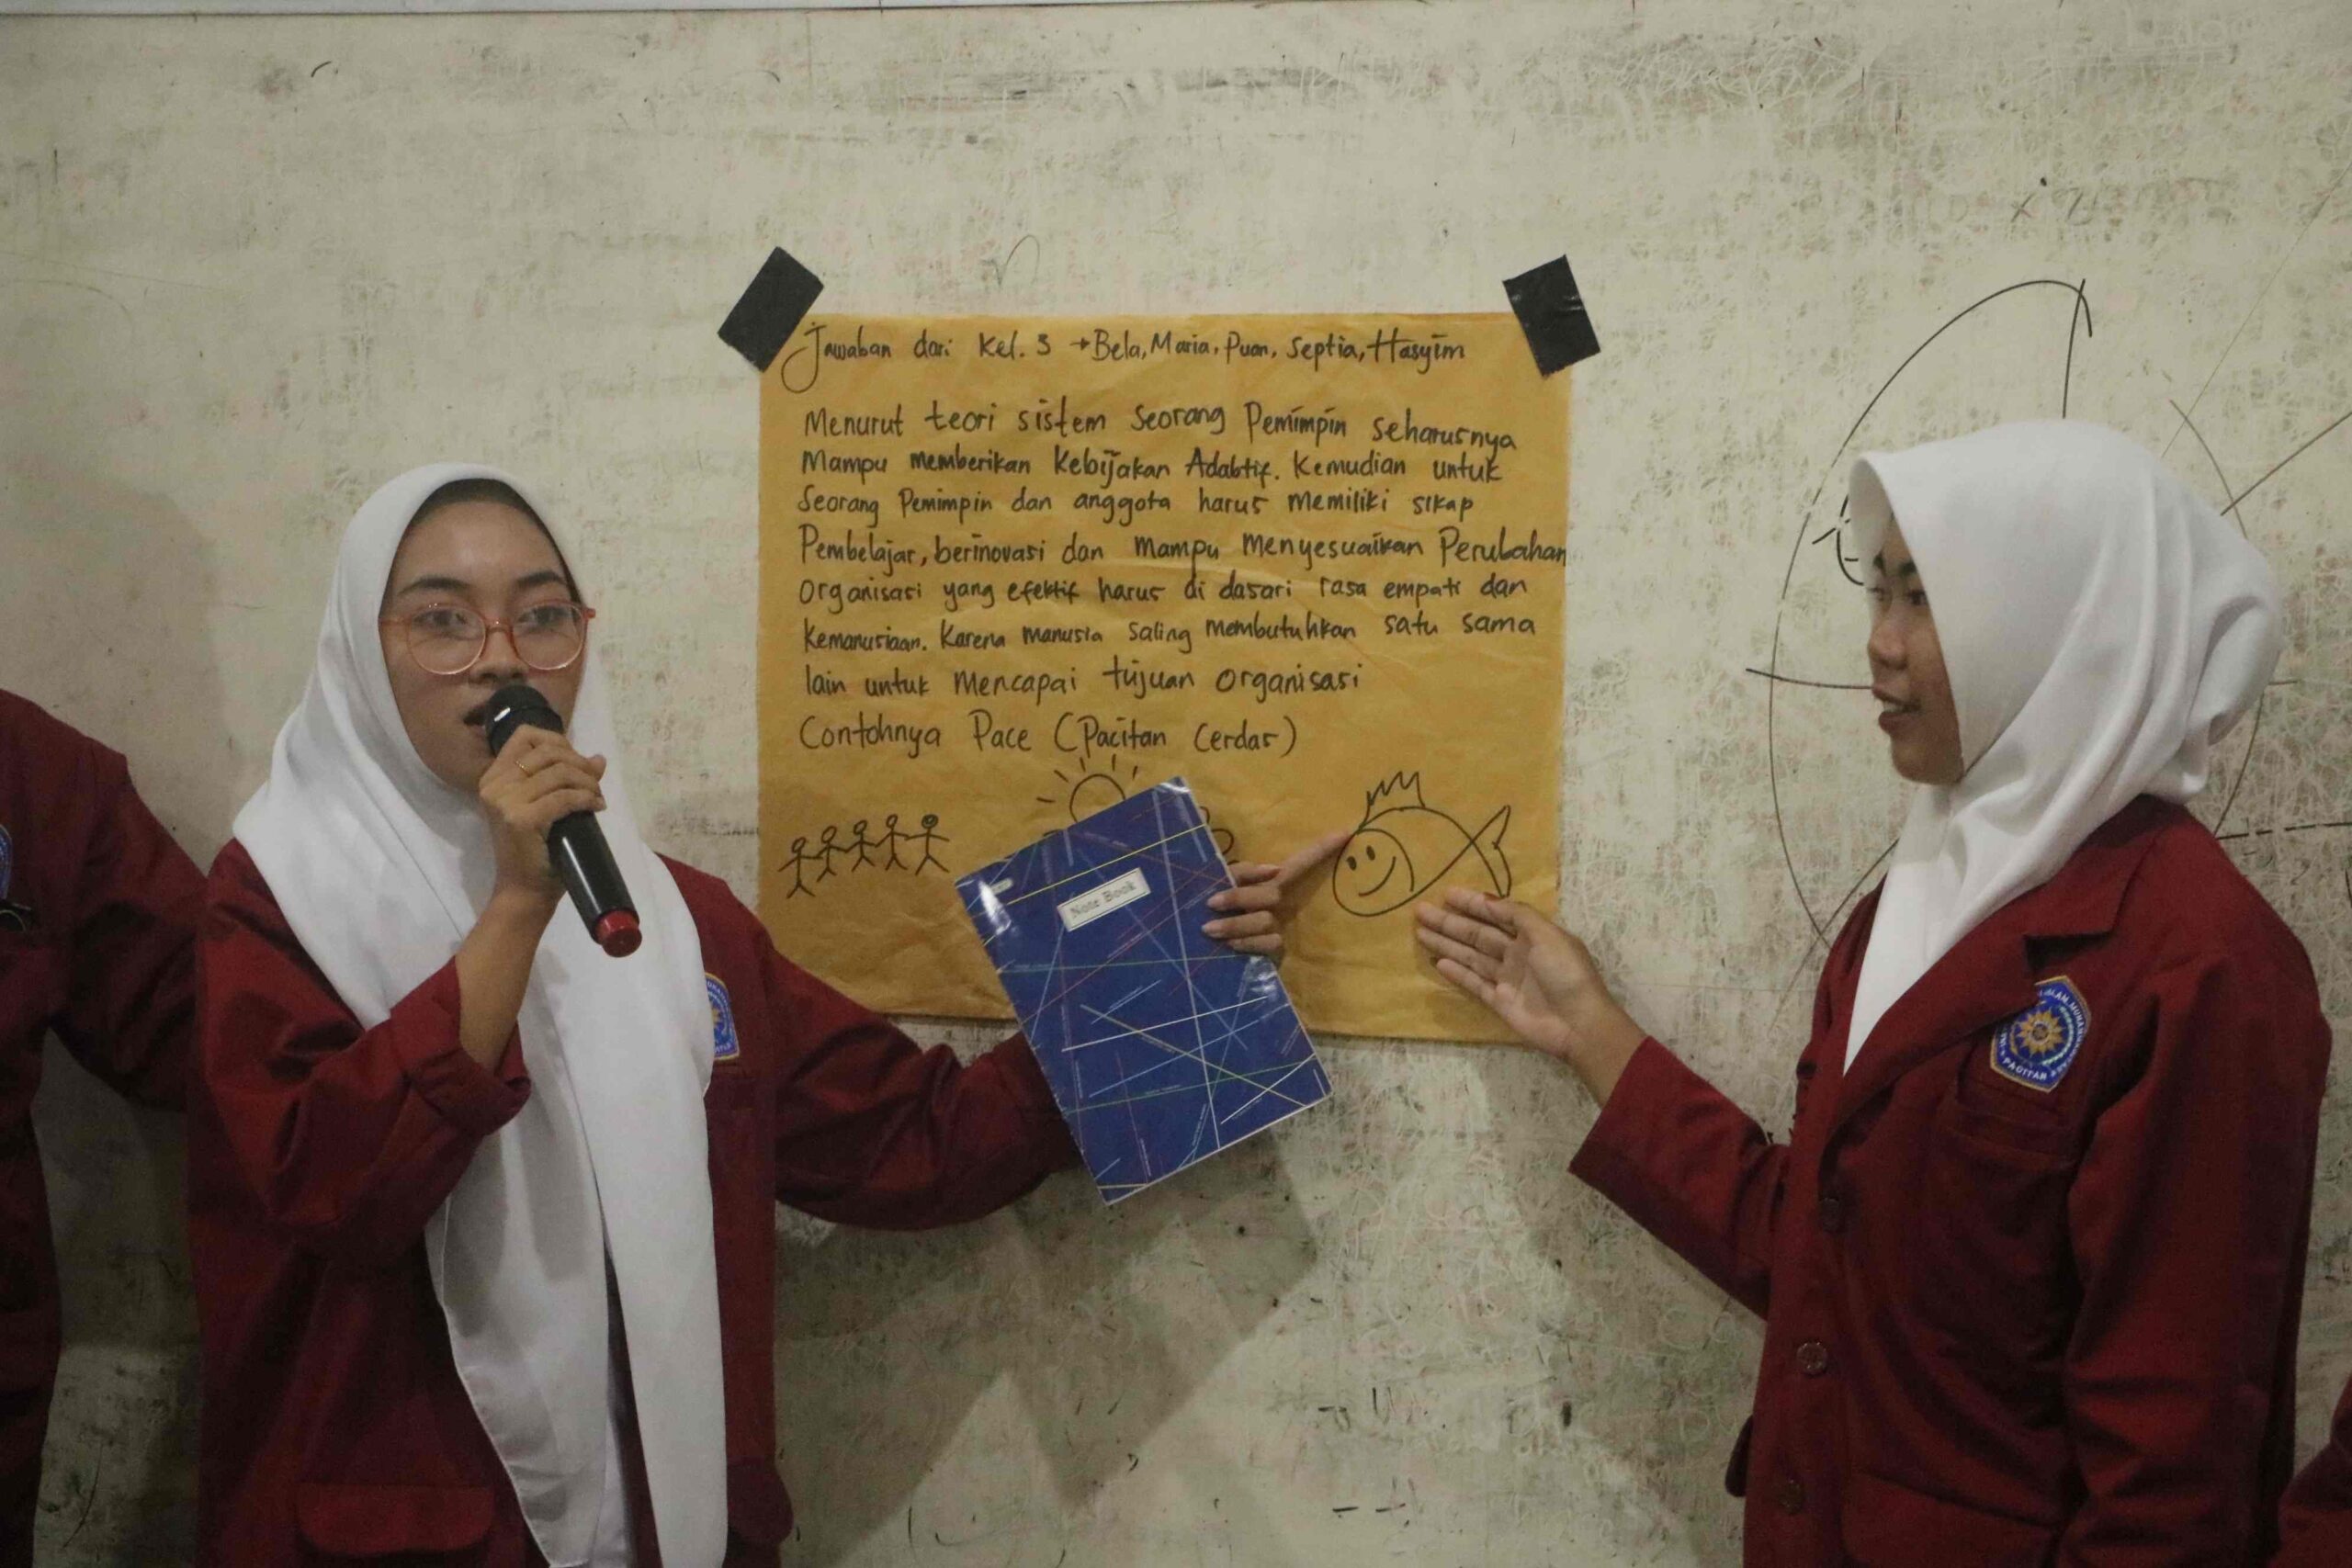 Jawaban dari Kel. 3 → Bela, Maria, Puan, Septia, Hasyim
Menurut teori sistem Seorang Pemimpin seharusnya
Mampu memberikan Kebijakan Adabtif. Kemudian untuk
Seorang Pemimpin dan anggota harus memiliki sikap
Pembelajar, berinovasi dan mampu Menyesuaikan Perubahan
Organisasi yang efektif harus di dasari rasa empati dan
Kemanusiaan. Karena manusia Saling membutuhkan satu sama
lain untuk Mencapai tujuan organisasi
Contohnya Pace (Pacitan Cerdas)
Note Book
PACITAN